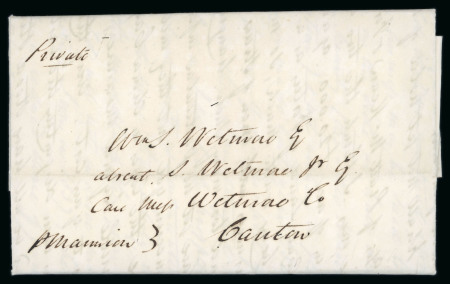 Private
Wm S. Wetmore Esq
absent. S. Wetmore Jr Esq.
Care Mess Wetmore Co
Canton